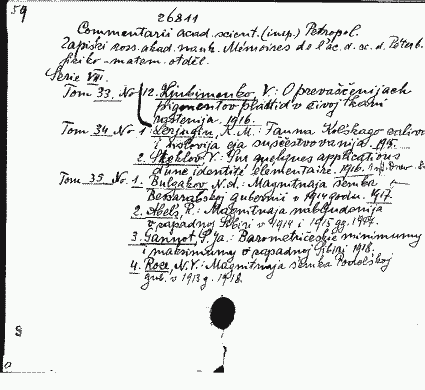 59
26811
Commentarii acad. scient. (imp.) Petropol.
Zapiski ross. akad. nauk. Mémoires de l'ac. d. sc. d. Petersb.
fiziko-matem. otděl.
Serie VIII.
Tom 33. No 12. Ljubimenko, V.: O prevraščenijach
pigmentov plastid v živoj tkani
rastenija. 1916.
Tom 34 No 1. Derjugin, K. M.: Fauna Kolskago zaliva
i uslovija eja suščestvovanija. 1915.
2. Steklov, V.: Sur quelques applications
d'une identité élémentaire. 1916.
Tom 35 No 1. Bulgakov, N. d.: Magnitnaja semka
Bessarabskoj gubernii v 1914 godu. 1917.
2. Abels, R.: Magnitnaja nabljudenija
v zapadnoj Sibiri v 1914 i 1915 gg.
3. Gannot, S. Ja.: Barometričeskie minimumy
i maksimumy v zapadnoj Sibiri 1918.
4. Roze, N. V.: Magnitnaja semka Podolskoj
gub. v 1913 g. 1918.